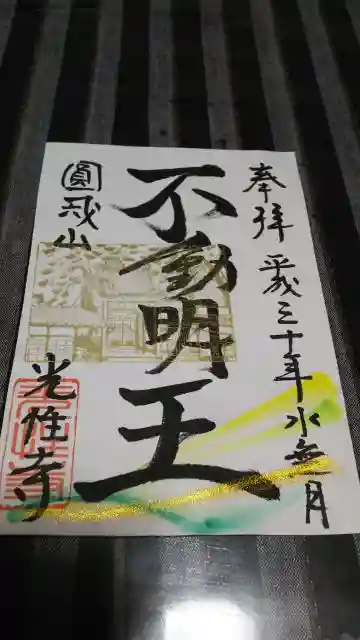 奉拝
平成三十年水無月
不動明王
圓戒山
光性寺